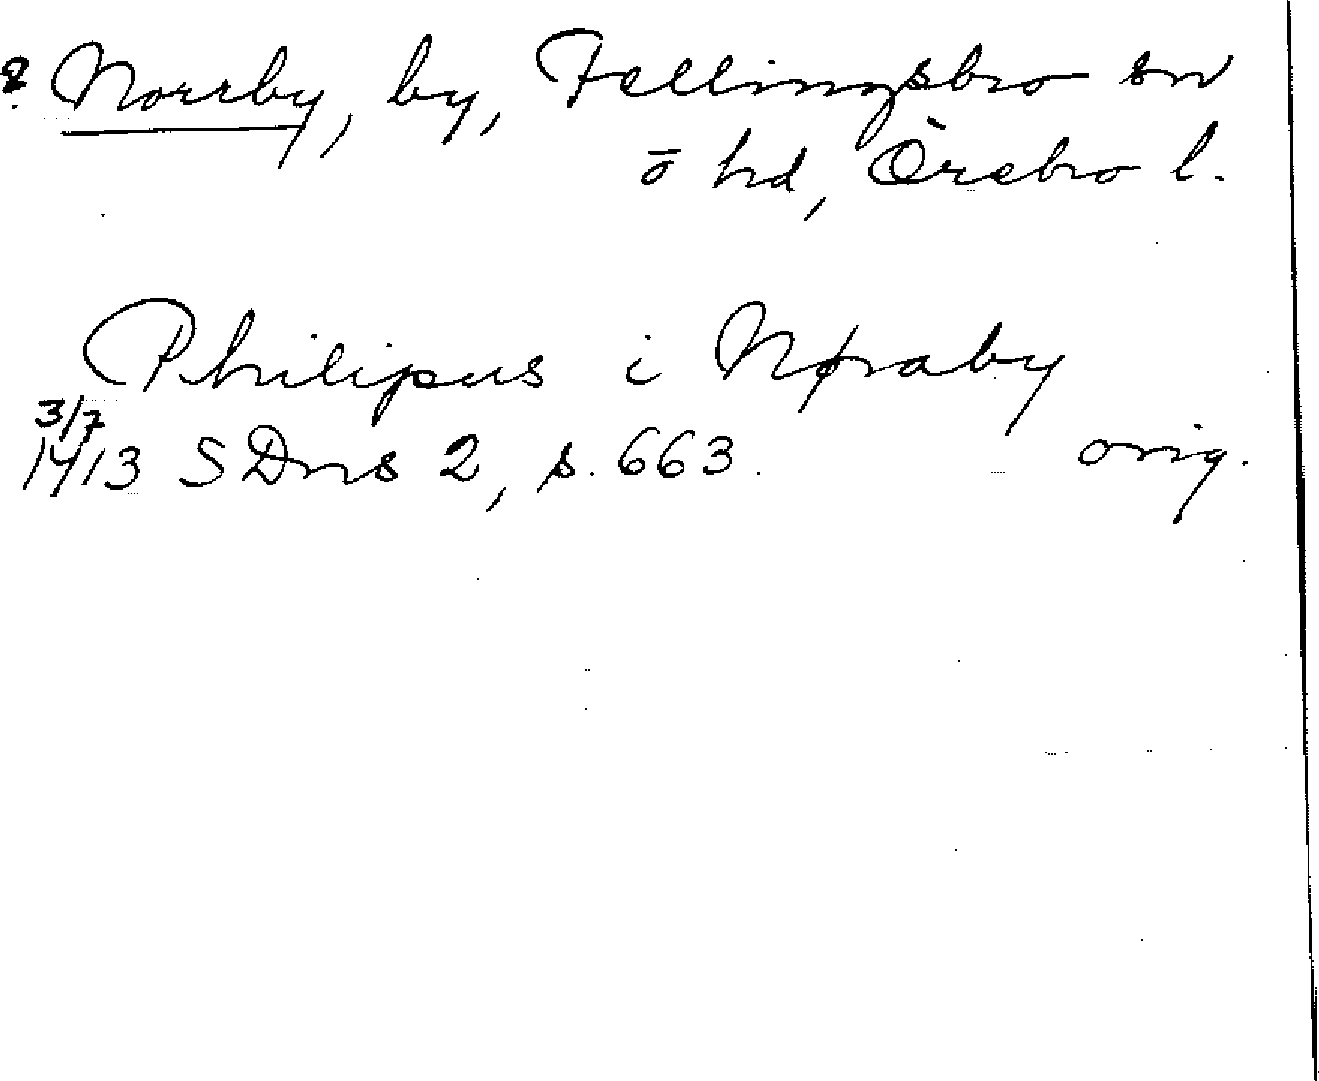 ? Norrby, by, Fellingsbro sn
ō hd, Örebro l.
Philipus i Nøraby
3/7
1413 SDns 2, s. 663. orig.